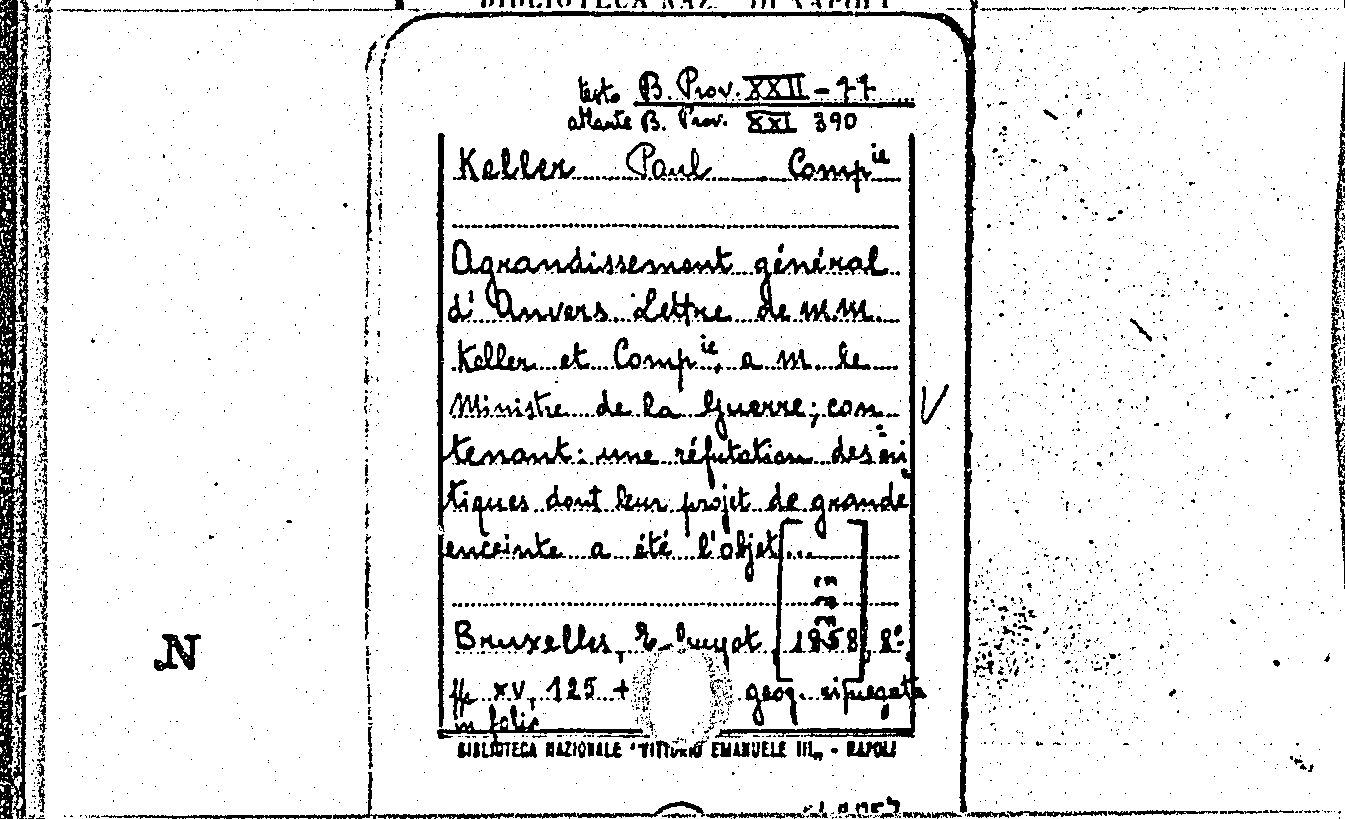 BIBLIOTECA NAZ. DI NAPOLI
testo B. Prov. XXII - 77
atlante B. Prov. XXI 390
Keller Paul Comp^ie
Agrandissement général
d'Anvers Lettre de m.m.
Keller et Comp^ie, a m. le
Ministre de la Guerre; con
tenant: une réfutation des cri
tiques dont leur projet de grande
enceinte a été l'objet...
Bruxelles, E. Guyot, [1858] 8º.
ff xv, 125 + geog. ripiegata
in folio
BIBLIOTECA NAZIONALE "VITTORIO EMANUELE III" - NAPOLI
N